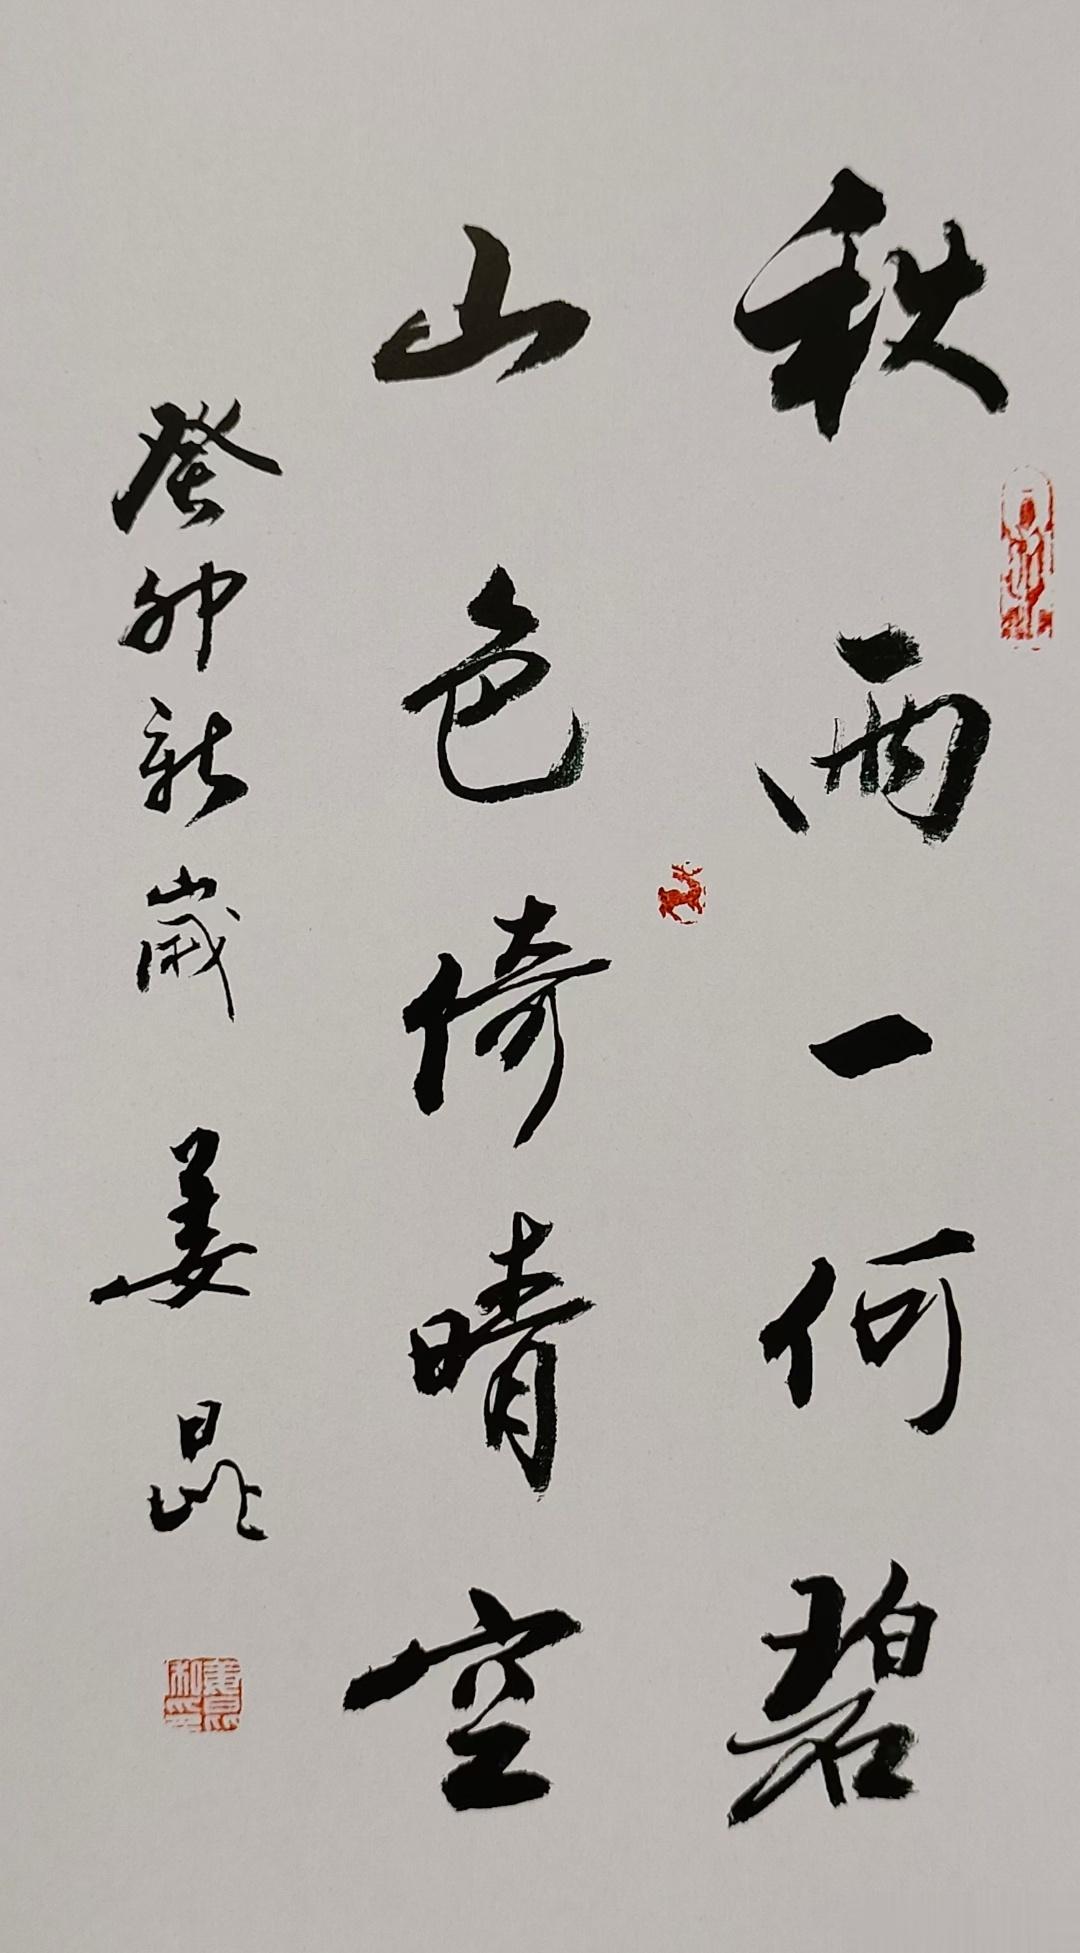 秋雨一何碧
山色倚晴空
癸卯新歲 姜昆